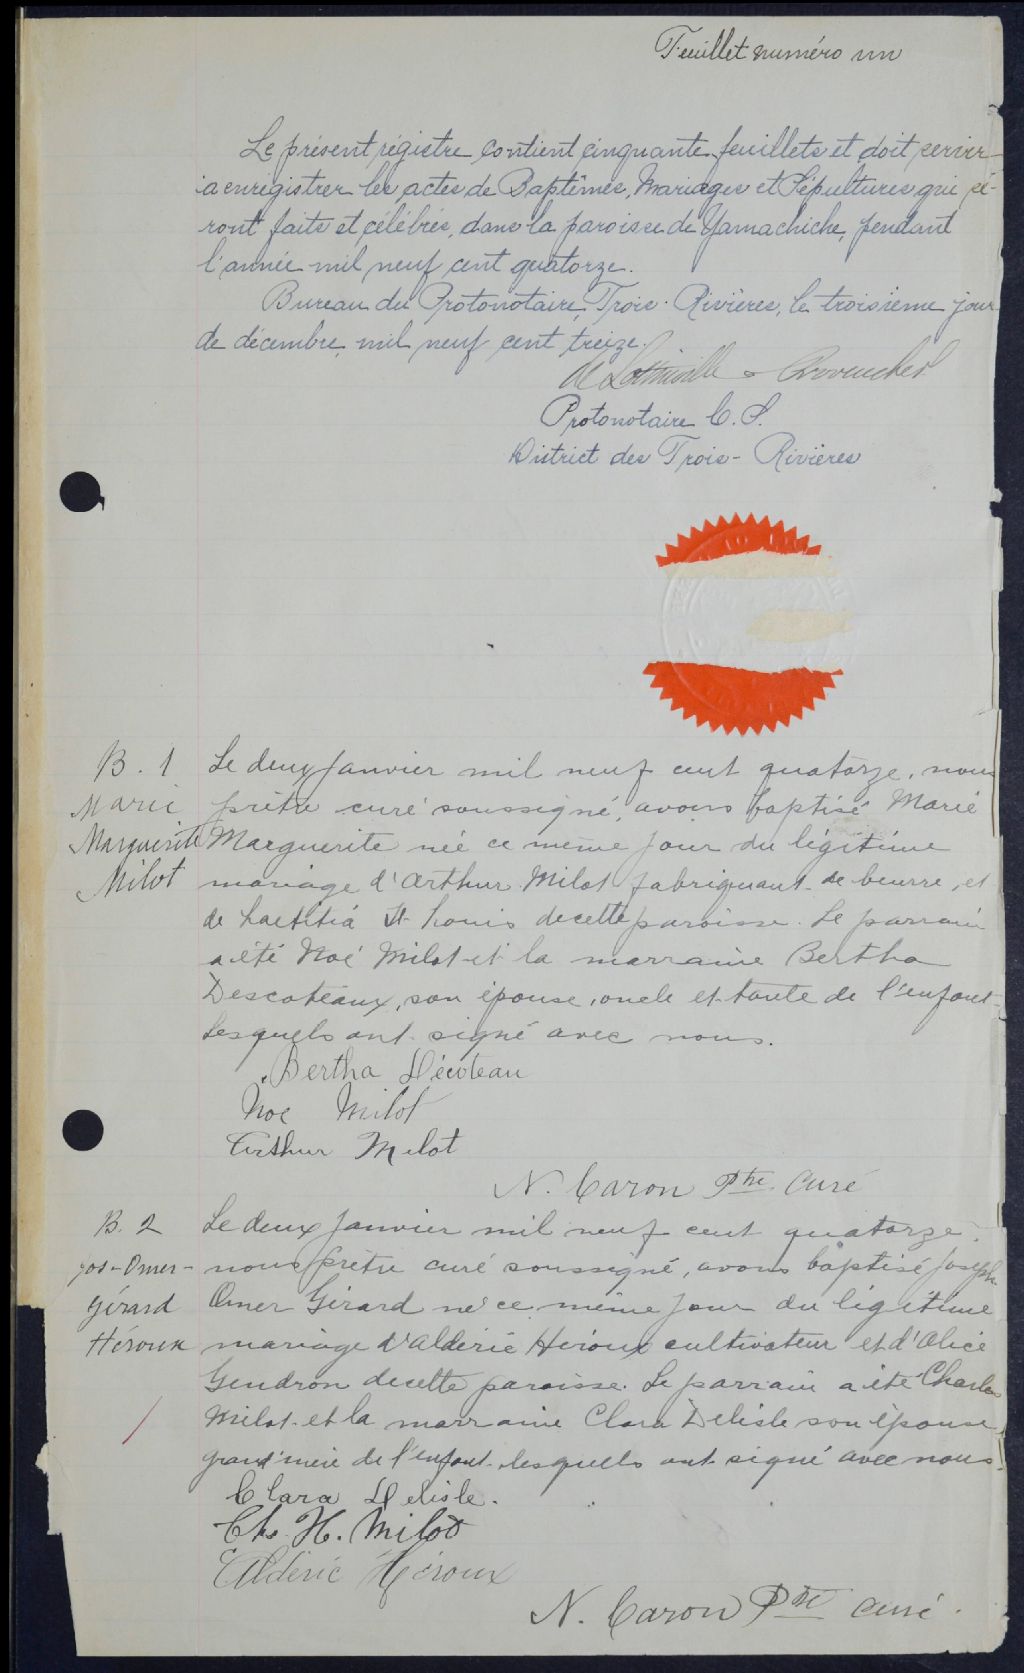 Feuillet numéro un
Le présent régistre contient cinquante feuillets et doit servir
à enregistrer les actes de Baptêmes, Mariages et Sépultures qui se-
ront faits et célébrés, dans la paroisse de Yamachiche, pendant
l'année mil neuf cent quatorze.
Bureau du Protonotaire, Trois-Rivières, le troisième jour
de décembre mil neuf cent treize.
Provencher
Protonotaire C. S.
District des Trois-Rivières
B. 1
Marie
Marguerite
Milot
Le deux Janvier mil neuf cent quatorze, nous
prêtre curé soussigné, avons baptisé Marie
Marguerite née ce même jour du légitime
mariage d'Arthur Milot fabriquant de beurre, et
de Laetitia St Louis de cette paroisse. Le parrain
a été Noé Milot et la marraine Bertha
Descoteaux, son épouse, oncle et tante de l'enfant
lesquels ont signé avec nous.
Bertha Décoteau
Noe Milot
Arthur Milot
N. Caron Ptre Curé
B. 2
Jos-Omer-
Gérard
Héroux
Le deux Janvier mil neuf cent quatorze,
nous prêtre curé soussigné, avons baptisé Joseph
Omer Gérard né ce même jour du légitime
mariage d'Aldéric Héroux cultivateur et d'Alice
Gendron de cette paroisse. Le parrain a été Charles
Milot et la marraine Clara Delisle son épouse
grand'mère de l'enfant lesquels ont signé avec nous.
Clara Delisle.
Chs. H. Milot
Aldéric Héroux
N. Caron Ptre Curé.